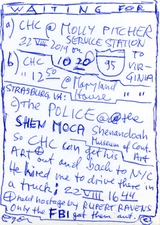 WAITING FOR
a) CHC @ MOLLY PITCHER
SERVICE STATION
22 VIII 2014 on TO
b) CHC 1020 95 VIR-
"12 50 @ Maryland GINIA
House
STRASBURG VA:
c) the POLICE @ @ the
SHEN MOCA Shenandoah
Museum of Cont.
so CHC can get his Art
ART out and back to NYC
He hired me to drive there in
a truck! 22 VIII 1644
held hostage by RUPERT RAVENS
Only the FBI got them out.